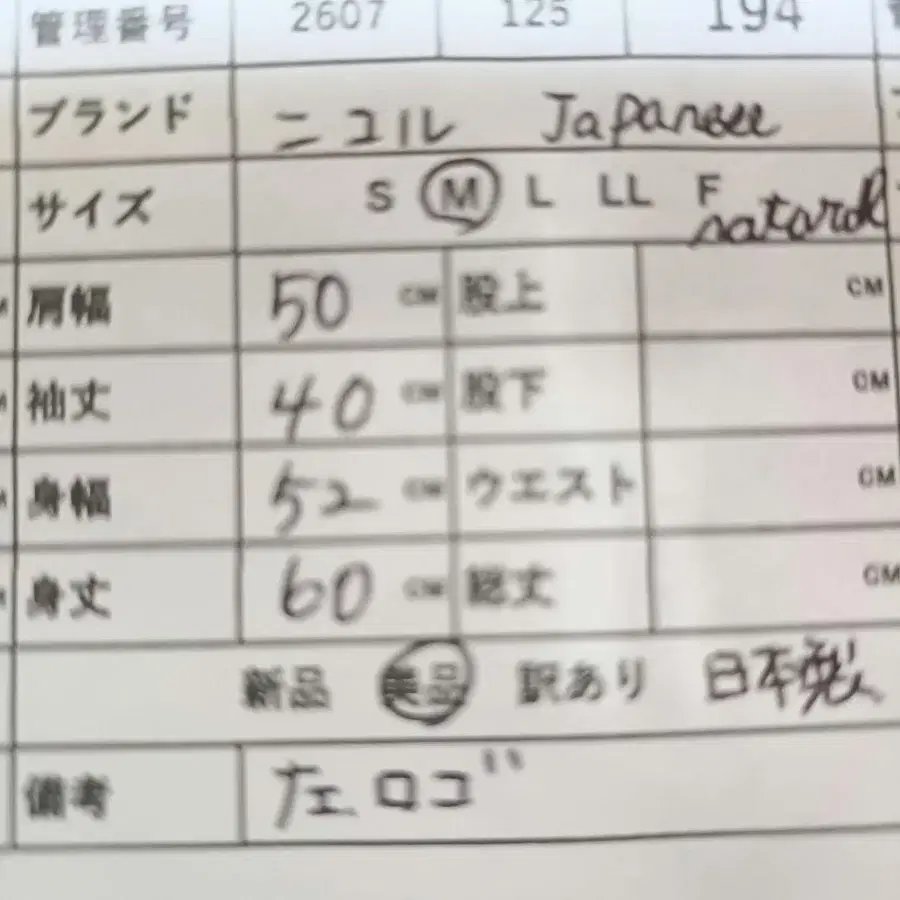 管理番号 2607 125 194
ブランド ニコル Japanese
サイズ S M L LL F natural
肩幅 50 CM 股上 CM
袖丈 40 CM 股下 CM
身幅 52 CM ウエスト CM
身丈 60 CM 総丈 CM
新品 美品 訳あり 日本製
備考 左ロゴ